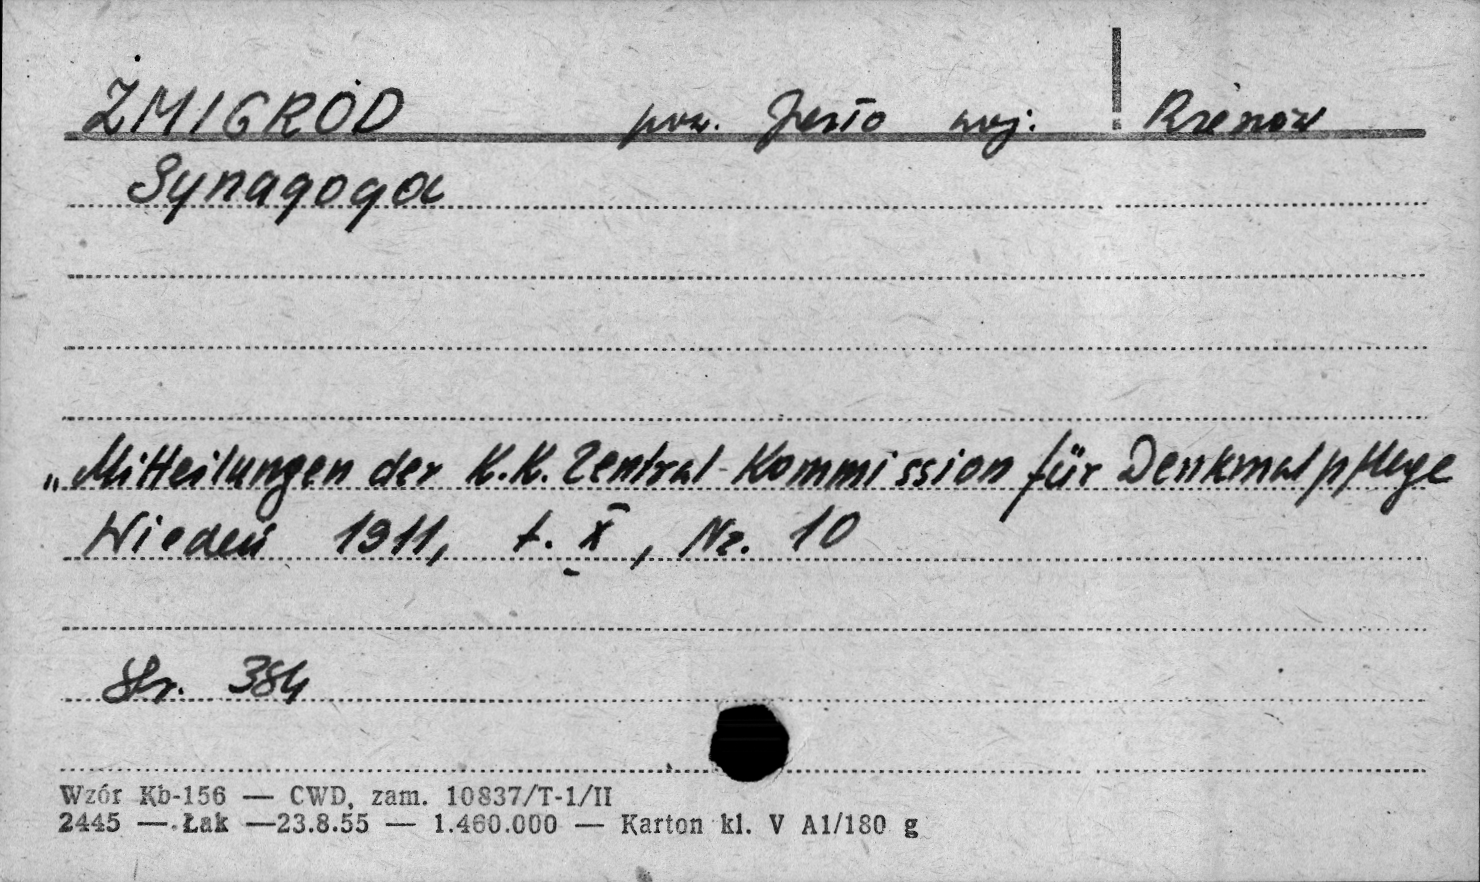 ŻMIGRÓD pow. Jasło woj. Rzeszów
Synagoga
„Mitteilungen der K.K. Zentral-Kommission für Denkmalpflege
Wiedeń 1911, t. X, Nr. 10
Str. 384
Wzór Kb-156 — CWD, zam. 10837/T-1/II
2445 — Łak —23.8.55 — 1.460.000 — Karton kl. V A1/180 g